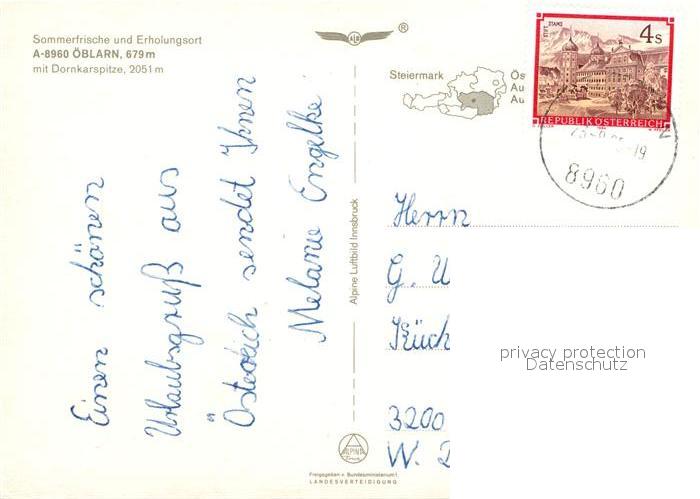 Sommerfrische und Erholungsort
A-8960 ÖBLARN, 679 m
mit Dornkarspitze, 2051 m
ALB
®
Steiermark
Ös
Au
Au
STIFT STAMS
4 s
REPUBLIK ÖSTERREICH
8960
Einen schönen
Urlaubsgruß aus
Östereich sendet Ihnen
Melanie Engelke
Alpine Luftbild Innsbruck
Herrn
G. U
Küch
3200
W. 2
privacy protection
Datenschutz
ALPINE
Freigegeben v. Bundesministerium f.
LANDESVERTEIDIGUNG